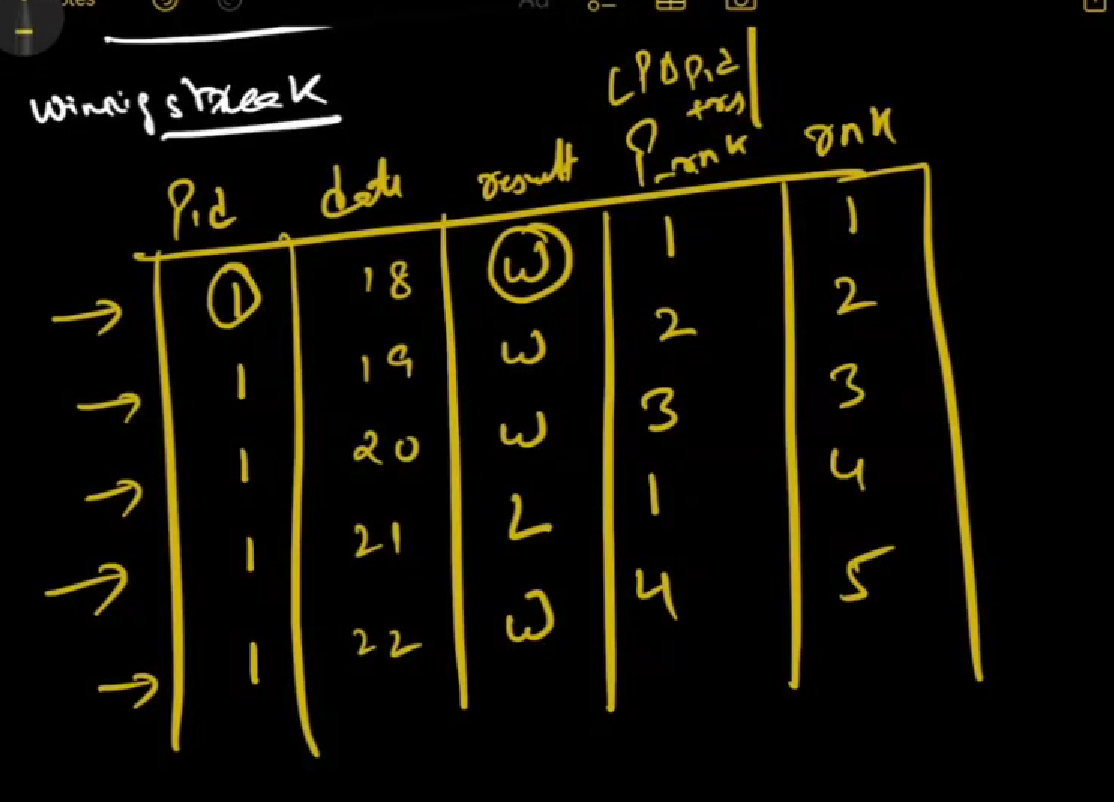 winnig streak
(PB p,id
+res)
P,id date result P_rnk rnk
1 18 W 1 1
1 19 W 2 2
1 20 W 3 3
1 21 L 1 4
1 22 W 4 5